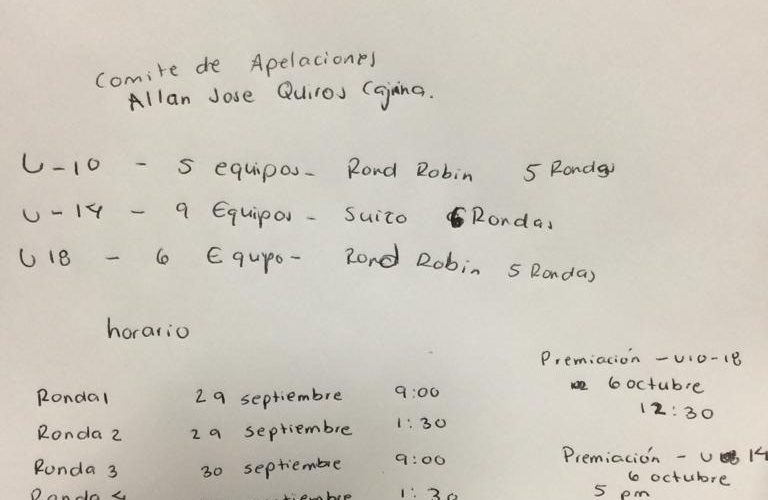 Comite de Apelaciones
Allan Jose Quiros
U-10 - 5 equipos - Rond Robin 5 Rondas
U-14 - 9 Equipos - Suizo 6 Rondas
U 18 - 6 Equpo - Rond Robin 5 Rondas
horario
Ronda 1 29 septiembre 9:00
Ronda 2 29 septiembre 1:30
Ronda 3 30 septiembre 9:00
Ronda 4 septiembre 1:30
Premiación - U10-18
6 octubre
12:30
Premiación - U 14
6 octubre
5 pm